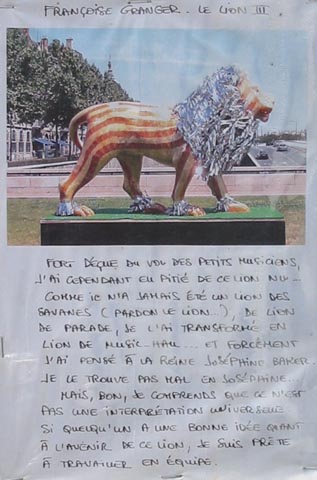 FRANÇOISE GRANGER. LE LION III
FORT DÉÇUE DU VOL DES PETITS MUSICIENS,
J'AI CEPENDANT EU PITIÉ DE CE LION NU...
COMME IL N'A JAMAIS ÉTÉ UN LION DES
SAVANES (PARDON LE LION...), DE LION
DE PARADE, JE L'AI TRANSFORMÉ EN
LION DE MUSIC-HALL... ET FORCÉMENT
J'AI PENSÉ À LA REINE JOSÉPHINE BAKER.
JE LE TROUVE PAS MAL EN JOSÉPHINE...
MAIS, BON, JE COMPRENDS QUE CE N'EST
PAS UNE INTERPRÉTATION UNIVERSELLE
SI QUELQU'UN A UNE BONNE IDÉE QUANT
À L'AVENIR DE CE LION, JE SUIS PRÊTE
À TRAVAILLER EN ÉQUIPE.